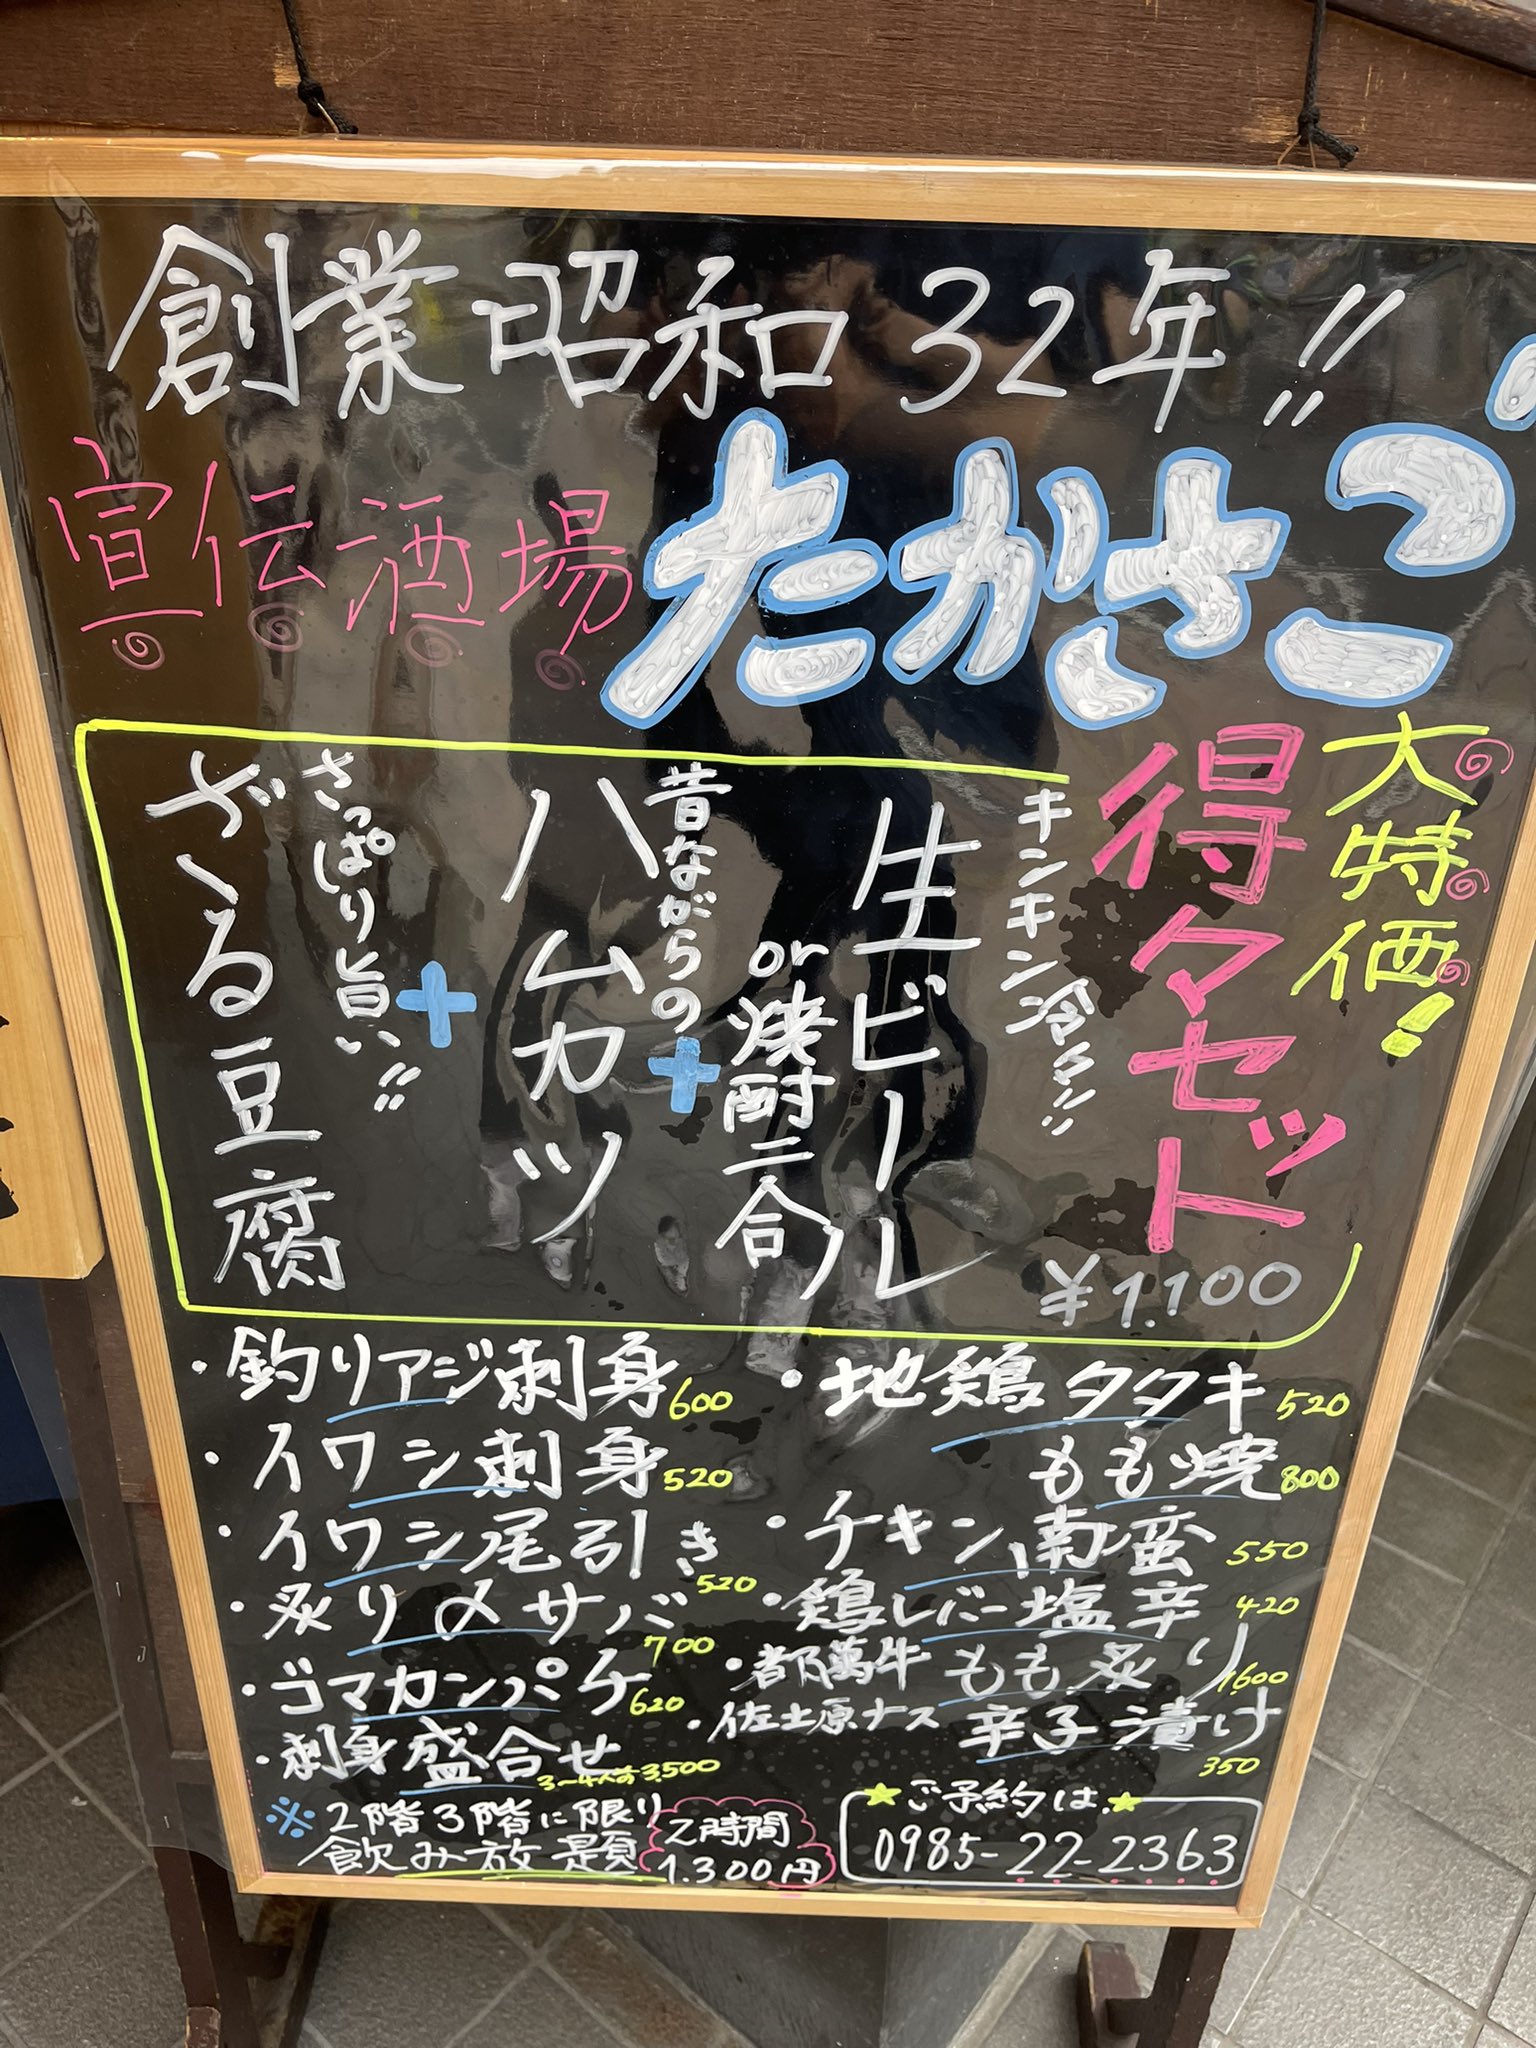 創業昭和32年!!
宣伝酒場
たかさご
大特価!
得々セット
¥1.100
キンキン冷え!!
生ビール
or焼酎二合
+
昔ながらの
ハムカツ
+
さっぱり旨い!!
ざる豆腐
・釣りアジ刺身600
・イワシ刺身520
・イワシ尾引き520
・炙り〆サバ700
・ゴマカンパチ620
・刺身盛合せ3〜4人前3,500
・地鶏タタキ520
もも焼800
・チキン南蛮550
・鶏レバー塩辛420
・都萬牛もも炙り1,600
・佐土原ナス辛子漬け350
※2階3階に限り
飲み放題
2時間
1.300円
★ご予約は★
0985-22-2363